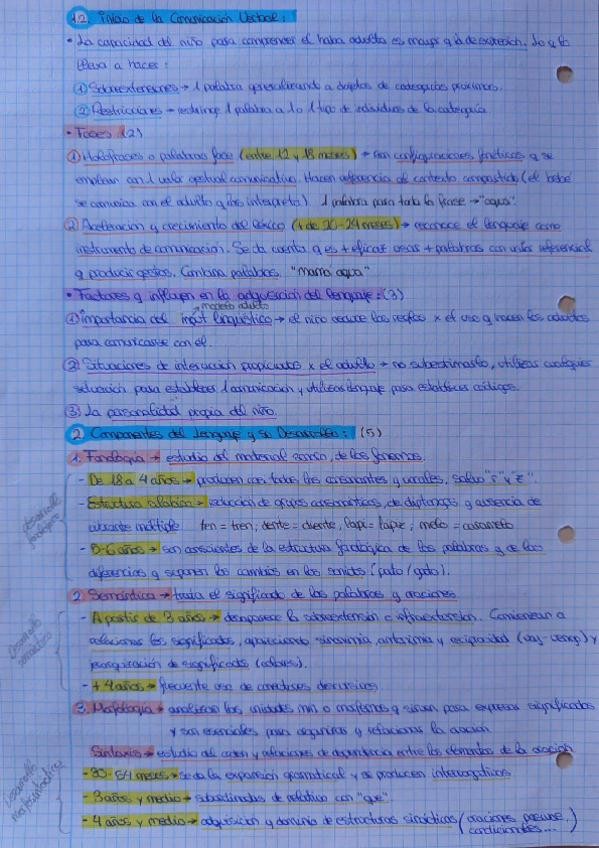 1.2 Inicio de la Comunicación Verbal:
• La capacidad del niño para comprender el habla adulta es mayor q la de expresión. Lo q lo
lleva a hacer:
① Sobreextensiones → 1 palabra generalizando a objetos de categorías próximas.
② Restricciones → restringe 1 palabra a 1 o 1 tipo de individuos de la categoría
• Fases (2)
① Holofrases o palabras frase (entre 12 y 18 meses) → son configuraciones fonéticas q se
emplean con 1 valor gestual comunicativo. Hacen referencia de contexto compartido (el bebé
se comunica con el adulto q los interpreta). 1 palabra para toda la frase → "agua".
② Aceleración y crecimiento del léxico (+ de 20-24 meses) → reconoce el lenguaje como
instrumento de comunicación. Se da cuenta q es + eficaz usar + palabras con valor referencial
q producir gestos. Combina palabras. "mamá agua"
• Factores q influyen en la adquisición del lenguaje: (3)
modelo adulto
① Importancia del input lingüístico → el niño deduce las reglas x el uso q hacen los adultos
para comunicarse con él.
② Situaciones de interacción propiciadas x el adulto → no subestimarlo, utilizar cualquier
situación para establecer 1 comunicación y utilizar lenguaje para establecer códigos.
③ La personalidad propia del niño.
2 Componentes del Lenguaje y su Desarrollo: (5)
1. Fonología → estudio del material sonoro, de los fonemas.
Desarrollo fonológico
- De 18 a 4 años → producen casi todas las consonantes y vocales, salvo "r" y "z".
- Estructura silábica → reducción de grupos consonánticos, de diptongos y ausencia de
vibrante múltiple ten = tren; dente = diente, lapi = lapiz; melo = caramelo
- 5-6 años → son conscientes de la estructura fonológica de las palabras y de las
diferencias q suponen los cambios en los sonidos (pato / gato).
2. Semántica → trata el significado de las palabras y oraciones
Desarrollo semántico
- A partir de 3 años → desaparece la sobreextensión e infraextensión. Comienzan a
relacionar los significados, apareciendo sinonimia, antonimia y reciprocidad (voy-vengo) y
reorganización de significados (colores).
- + 4 años → frecuente uso de conectores discursivos
3. Morfología → analizan las unidades mín o morfemas q sirven para expresar significados
y son esenciales para organizar y relacionar la oración
Sintaxis → estudio del orden y relaciones de dependencia entre los elementos de la oración
Desarrollo morfosintáctico
- 30-54 meses → se da la expansión gramatical y se producen interrogativas
- 3 años y medio → subordinadas de relativo con "que".
- 4 años y medio → adquisición y dominio de estructuras sintácticas (oraciones pasivas, condicionales...)